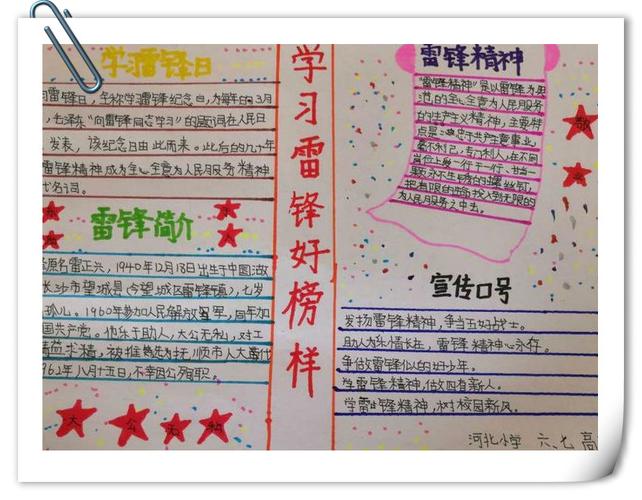 学习雷锋日
雷锋日，全称学习雷锋纪念日，为每年的3月
毛泽东“向雷锋同志学习”的题词在人民日
发表，该纪念日由此而来。此后的几十年
雷锋精神成为全心全意为人民服务精神
名词。
雷锋简介
原名雷正兴，1940年12月18日出生于中国湖
长沙市望城县（今望城区雷锋镇），七岁
孤儿。1960年参加人民解放军，同年加
国共产党。他乐于助人，大公无私，对工
精益求精，被推选为抚顺市人大代
962年八月十五日，不幸因公殉职。
大公无私
学习雷锋好榜样
雷锋精神
“雷锋精神”是以雷锋为
范的全心全意为人民服务
的共产主义精神，主要特
点是：忠于共产主义事业，
毫不利己，专门利人，在不同
岗位上干一行
永不生锈的螺丝钉，
把有限的投入到无限的
为人民服务之中去。
敬
宣传口号
发扬雷锋精神，争当五好战士。
助人为乐情长在，雷锋精神心永存。
争做雷锋似的好少年。
学雷锋精神，做四有新人。
学雷锋精神，树校园新风。
河北小学 六、七 高